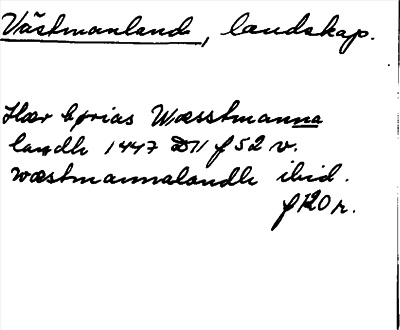 Västmanlands, landskap.
Hær børias Wæsstmanna
landh 1447 D11 f 52 v.
wæstmannalandh ibid.
f 120 r.